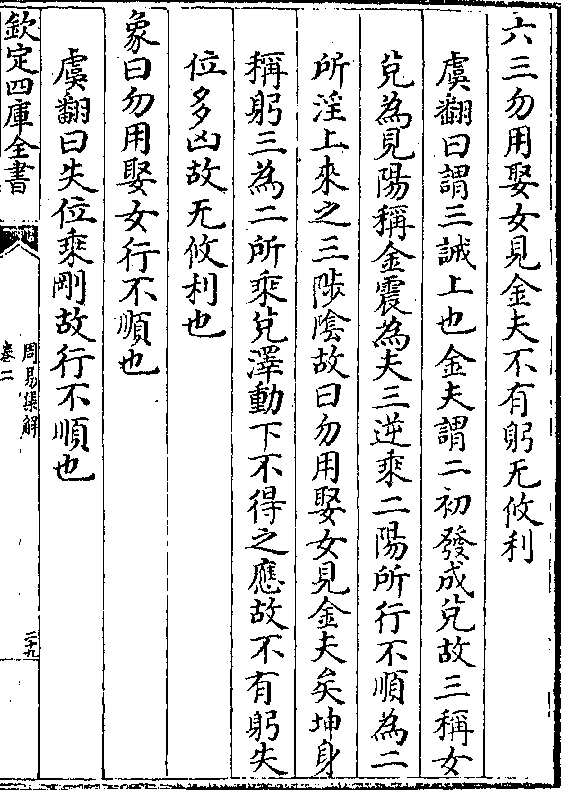 六三勿用娶女見金夫不有躬无攸利
虞翻曰謂三誡上也金夫謂二初發成兌故三稱女
兌為見陽稱金震為夫三逆乘二陽所行不順為二
所淫上來之三陟陰故曰勿用娶女見金夫矣坤身
稱躬三為二所乘兌澤動下不得之應故不有躬失
位多凶故无攸利也
象曰勿用娶女行不順也
虞翻曰失位乘剛故行不順也
欽定四庫全書
周易集解
卷二
二十九